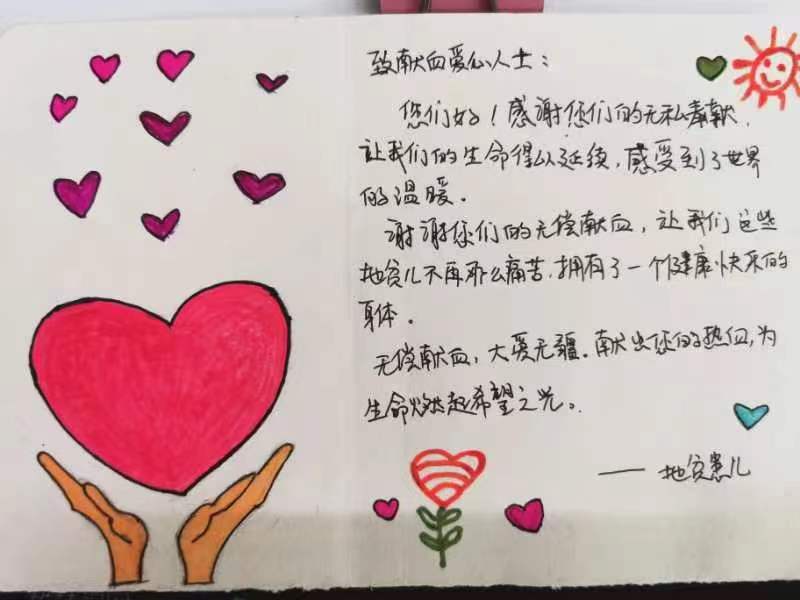 致献血爱心人士：
您们好！感谢您们的无私奉献，
让我们的生命得以延续，感受到了世界
的温暖。
谢谢您们的无偿献血，让我们这些
地贫儿不再那么痛苦，拥有了一个健康快乐的
身体。
无偿献血，大爱无疆。献出您的热血，为
生命燃起希望之光。
——地贫患儿